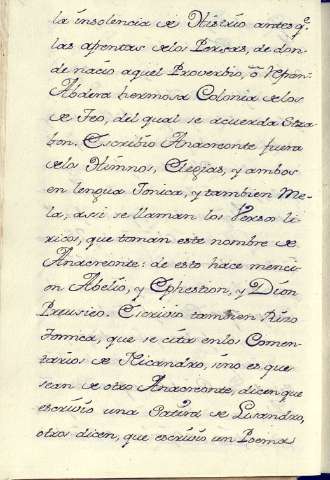 la insolencia de Histrio antes q.e
las afrentas de los Persas, de don-
de nacio aquel Proverbio,
Abdera hermosa Colonia de los
de Teo, del qual se acuerda Stra
bon. Escribio Anacreonte fuera
de los Himnos, Elegias, y ambos
en lengua Ionica, y tambien Me-
la, asi se llaman los Versos li
ricos, que toman este nombre de
Anacreonte: de esto hace menci
on Abelio, y Ephestion, y Dion
Preusieo. Escrivio tambien Rizo
tomica, que se cita en los Comen-
tarios de Nicandro, sino es que
sean de otro Anacreonte, dicen que
escrivio una Satira de Lisandro,
otros dicen, que escrivio un Poema